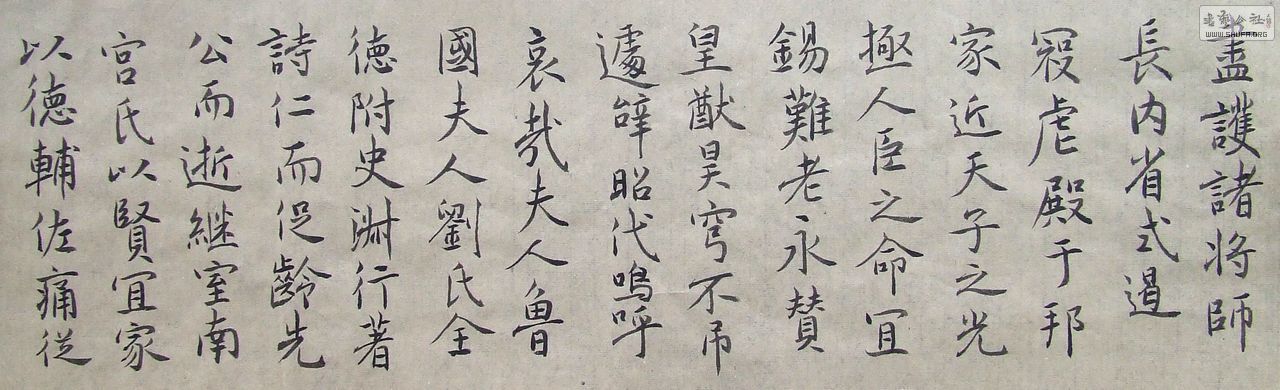 盡護諸將師
長内省式遏
冦虐殿于邦
家近天子之光
極人臣之命宜
錫難老永賛
皇猷昊穹不吊
遽辥昭代嗚呼
哀哉夫人魯
國夫人劉氏全
德附史淋行著
詩仁而促齡先
公而逝繼室南
宮氏以賢宜家
以德輔佐痛從
WWW.SHUFA.ORG